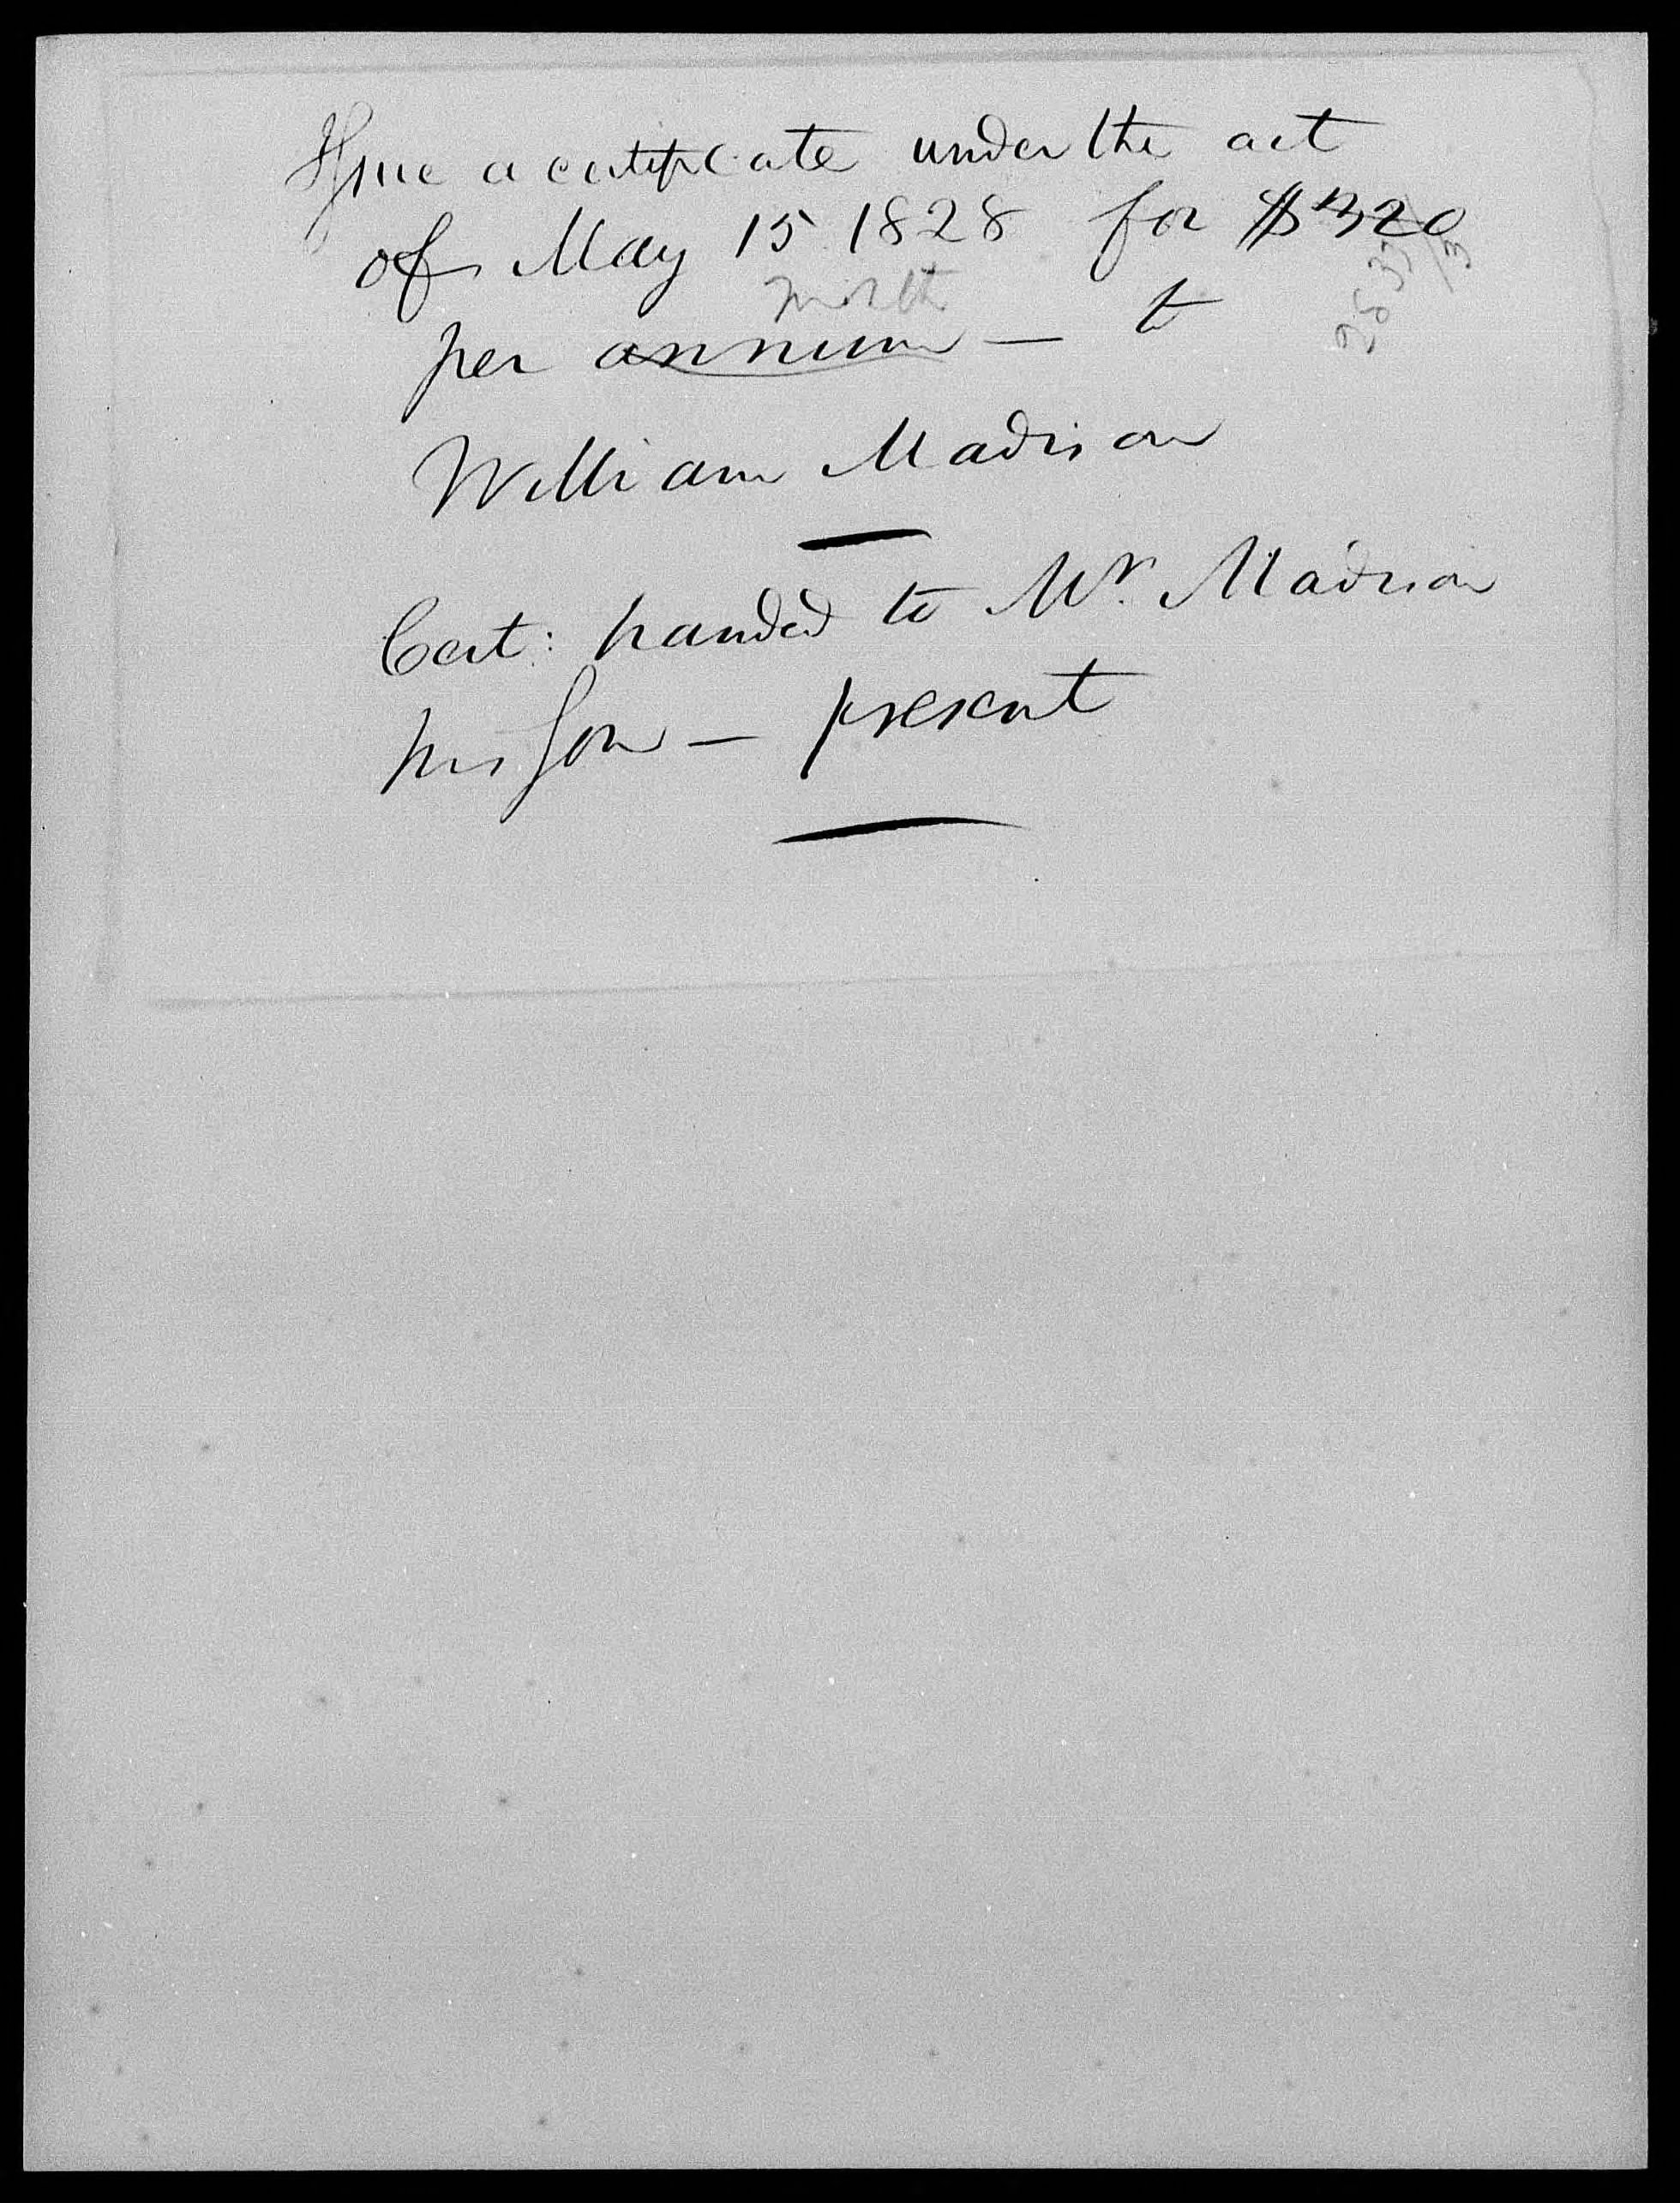 Issue a certificate under the act
of May 15 1828 for $320
month
per annum — to
William Madison
Cert: handed to Mr. Madison
his Son — present